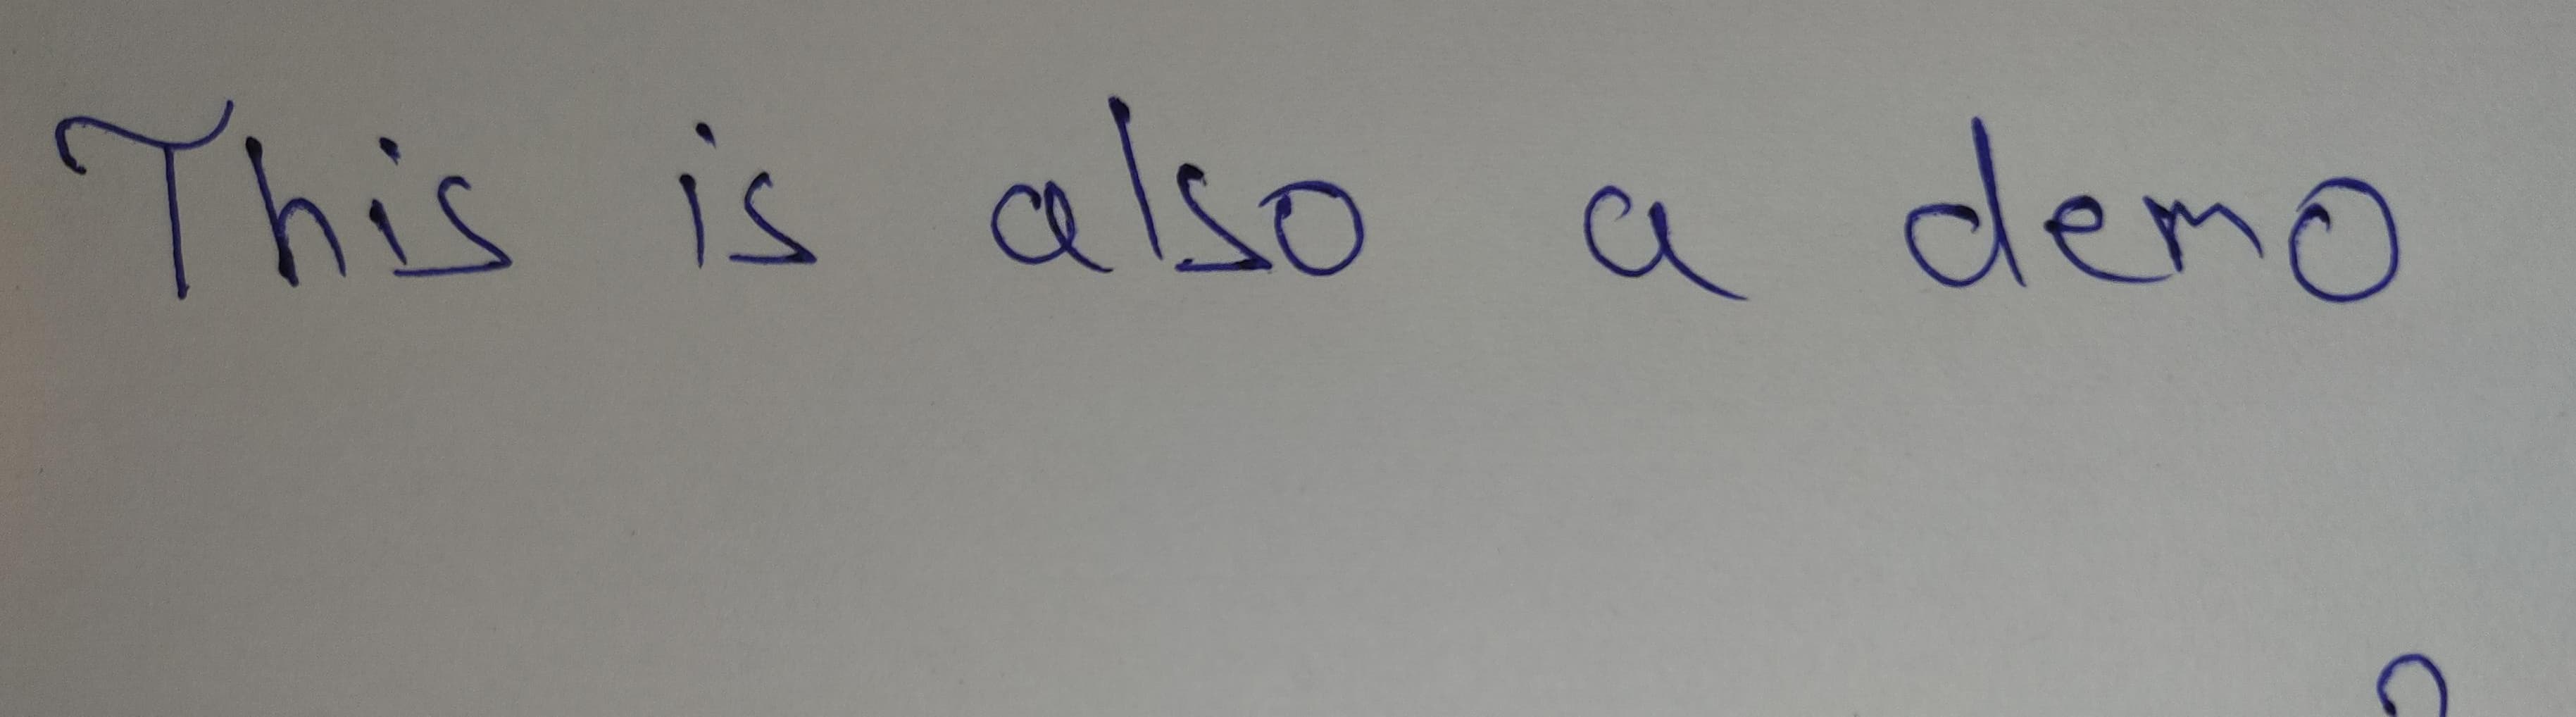 This is also a demo